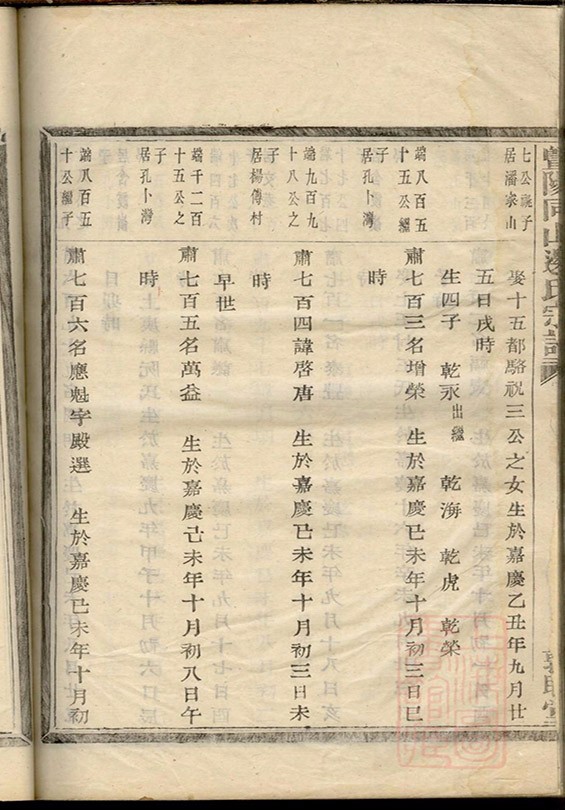 暨陽同山邊氏宗譜
七公嗣子
居潘家山
娶十五都駱祝三公之女生於嘉慶乙丑年九月廿
五日戌時
生四子 乾永出繼 乾海 乾虎 乾榮
端八百五
十五公繼
子
居孔卜灣
肅七百三名增榮 生於嘉慶己未年十月初三日巳
時
端九百九
十八公之
子
居楊傅村
肅七百四諱啓唐 生於嘉慶己未年十月初三日未
時
早世
端千二百
十五公之
子
居孔卜灣
肅七百五名萬益 生於嘉慶己未年十月初八日午
時
端八百五
十公繼子
肅七百六名應魁字殿選 生於嘉慶己未年十月初